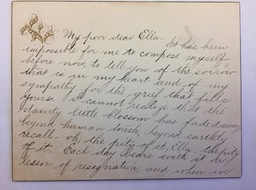 My poor dear Ella. It has been
impossible for me to compose myself
before now to tell you of the sorrow
that is in my heart and of my
sympathy for the grief that fills
yours. I cannot realize that the
dainty little blossom has faded away
beyond human lovely, beyond earthly
recall - oh, the pity of it, Ella, the pity
of it. Each day bears with it a
lesson of resignation, and when we